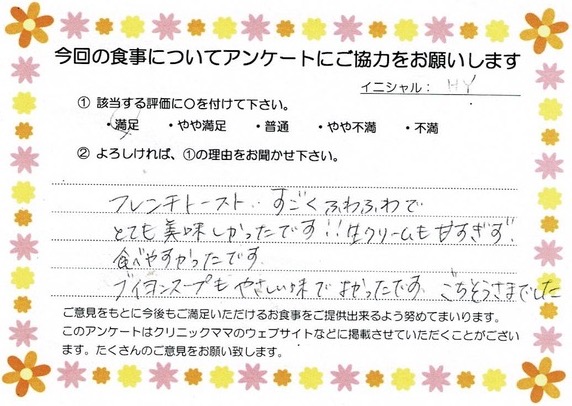 今回の食事についてアンケートにご協力をお願いします
イニシャル： HY
① 該当する評価に○を付けて下さい。
・満足 ・やや満足 ・普通 ・やや不満 ・不満
② よろしければ、①の理由をお聞かせ下さい。
フレンチトースト‥すごくふわふわで
とても美味しかったです!!生クリームも甘すぎず、
食べやすかったです
ブイヨンスープもやさしい味でよかったです。ごちそうさまでした
ご意見をもとに今後もご満足いただけるお食事をご提供出来るよう努めてまいります。
このアンケートはクリニックママのウェブサイトなどに掲載させていただくことがござい
ます。たくさんのご意見をお願い致します。